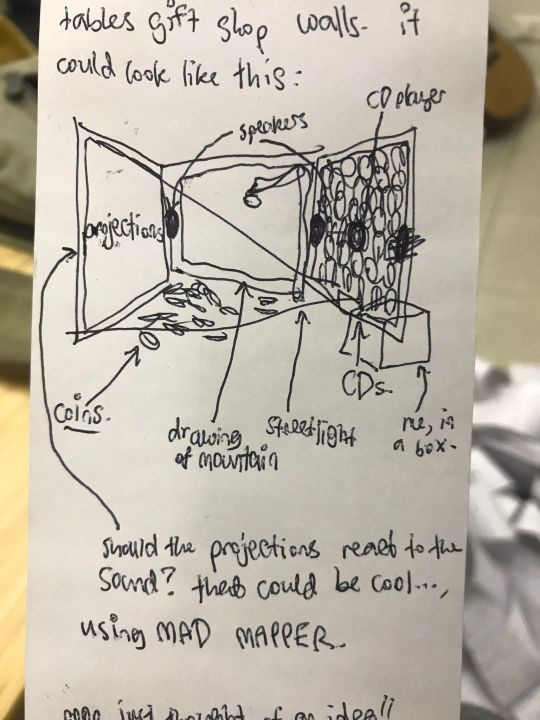 tables gift shop walls. it
could look like this:
CD player
speakers
projections
coins.
drawing
of mountain
streetlight
CDs.
me, in
a box.
should the projections react to the
sound? that could be cool...,
using MAD MAPPER.
just thought of an idea!!